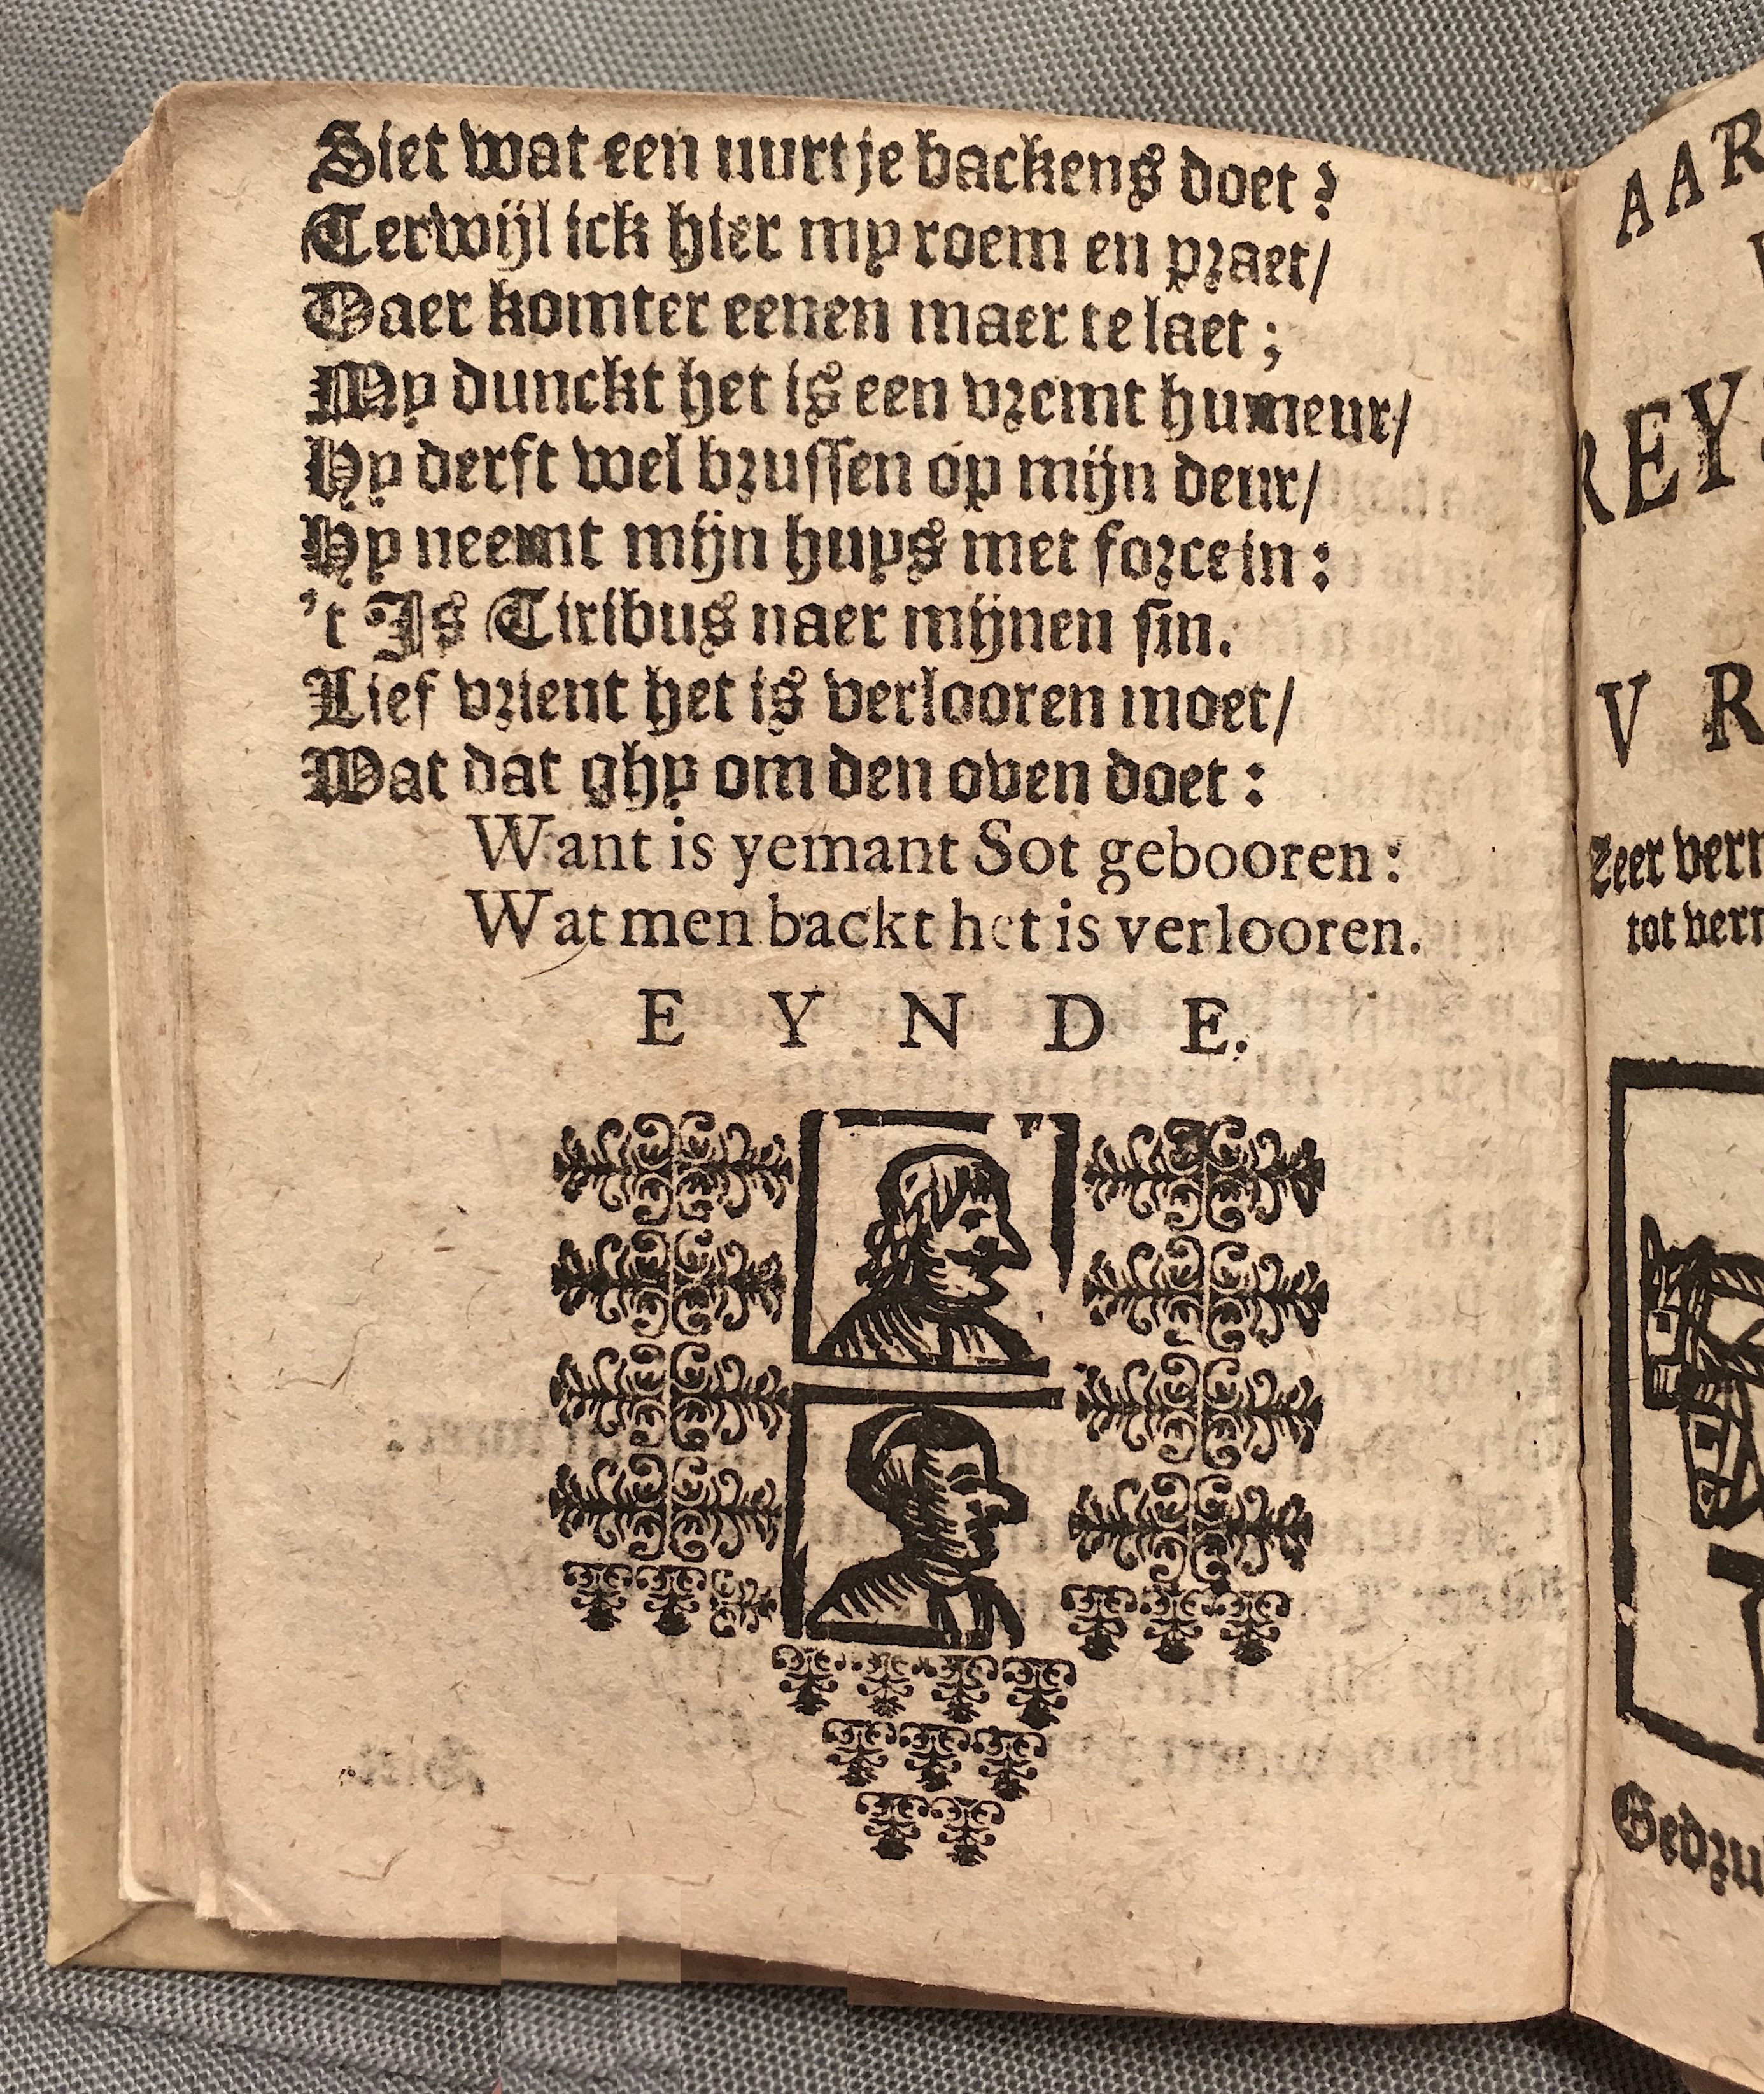 Siet wat een uurtje backens doet?
Terwijl ick hier my roem en praet/
Daer komter eenen maer te laet;
My dunckt het is een vremt humeur/
Hy derft wel brussen op mijn deur/
Hy neemt mijn huys met force in:
't Is Tiribus naer mijnen sin.
Lief vrient het is verlooren moet/
Wat dat ghy om den oven doet:
Want is yemant Sot gebooren:
Wat men backt het is verlooren.
EYNDE.
AAR
REY
V R
Zeer verr
tot verr
Gedru